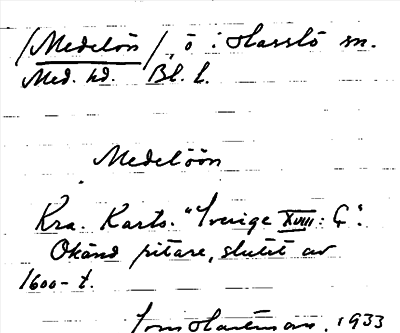 /Medelön/, ö i Hasslö sn.
Med. hd. Bl. l.
Medelöön
Kra. Karts. "Sverige XVIII: Ç".
Okänd ritare, slutet av
1600-t.
Tom Hartman, 1933